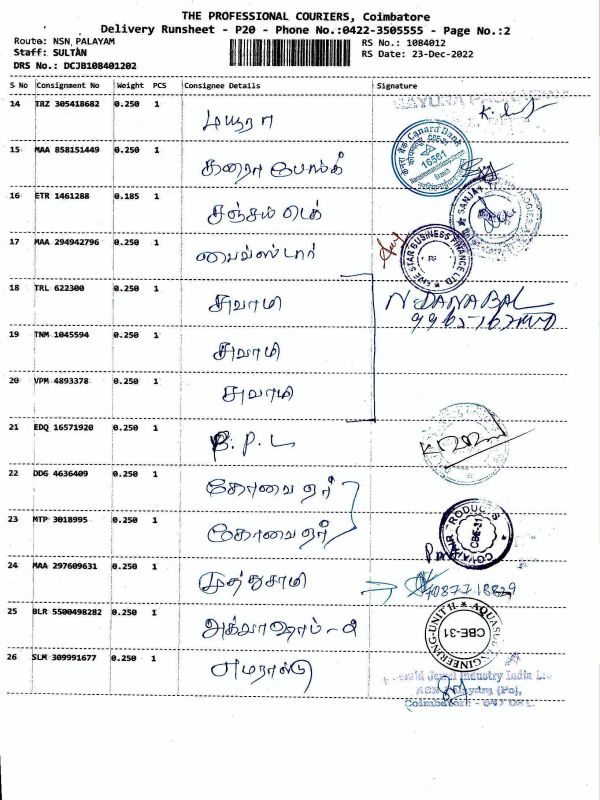 THE PROFESSIONAL COURIERS, Coimbatore
Delivery Runsheet - P20 - Phone No.:0422-3505555 - Page No.:2
Route: NSN PALAYAM
Staff: SULTAN
DRS No.: DCJB108401202
RS No.: 1084012
RS Date: 23-Dec-2022
S No Consignment No Weight PCS Consignee Details Signature
14 IRZ 305418682 0.250 1 மயூரா
15 MAA 858151449 0.250 1 கனரா பேங்க் Canara Bank 16561
16 ETR 1461288 0.185 1 சஞ்சய் டெக் SANJAY TECHNOLOGIES
17 MAA 294942796 0.250 1 பைவ்ஸ்டார் FIVE STAR BUSINESS FINANCE LTD
18 TRL 622300 0.250 1 சுவாமி N. DANABAL
19 TNM 1045594 0.250 1 சுவாமி
20 VPM 4893378 0.250 1 சுவாமி
21 EDQ 16571920 0.250 1 B.P.L
22 DDG 4636409 0.250 1 கோவை ஏர்
23 MTP 3018995 0.250 1 கோவை ஏர் COVAI AIR PRODUCTS CBE-31
24 MAA 297609631 0.250 1 முத்துசாமி
25 BLR 5500498282 0.250 1 அக்வாசப்-2 ENGINEERING-UNIT-II CBE-31
26 SLM 309991677 0.250 1 எமரால்டு
Emerald Jewel Industry India Ltd
NSN Palayam (Po),
Coimbatore - 641 031.